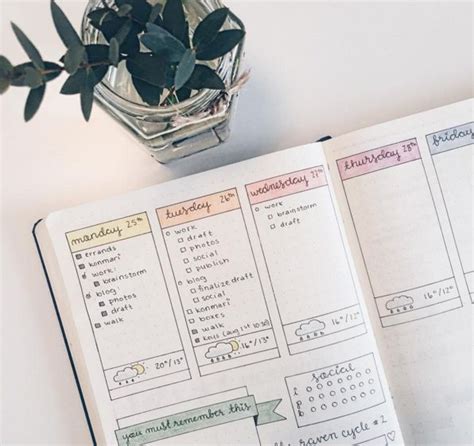 monday 25th
errands
konmari
work!
brainstorm
blog!
photos
draft
walk
20°/13°
tuesday 26th
work
draft
photos
social
publish
blog
finalize draft
social
konmari
boxes
walk
keys (aug 1st 10:30)
16°/12°
wednesday 27th
work
brainstorm
draft
16°/11°
thursday 28th
16°/12°
friday
you must remember this
social
i
p
b
raven cycle #2